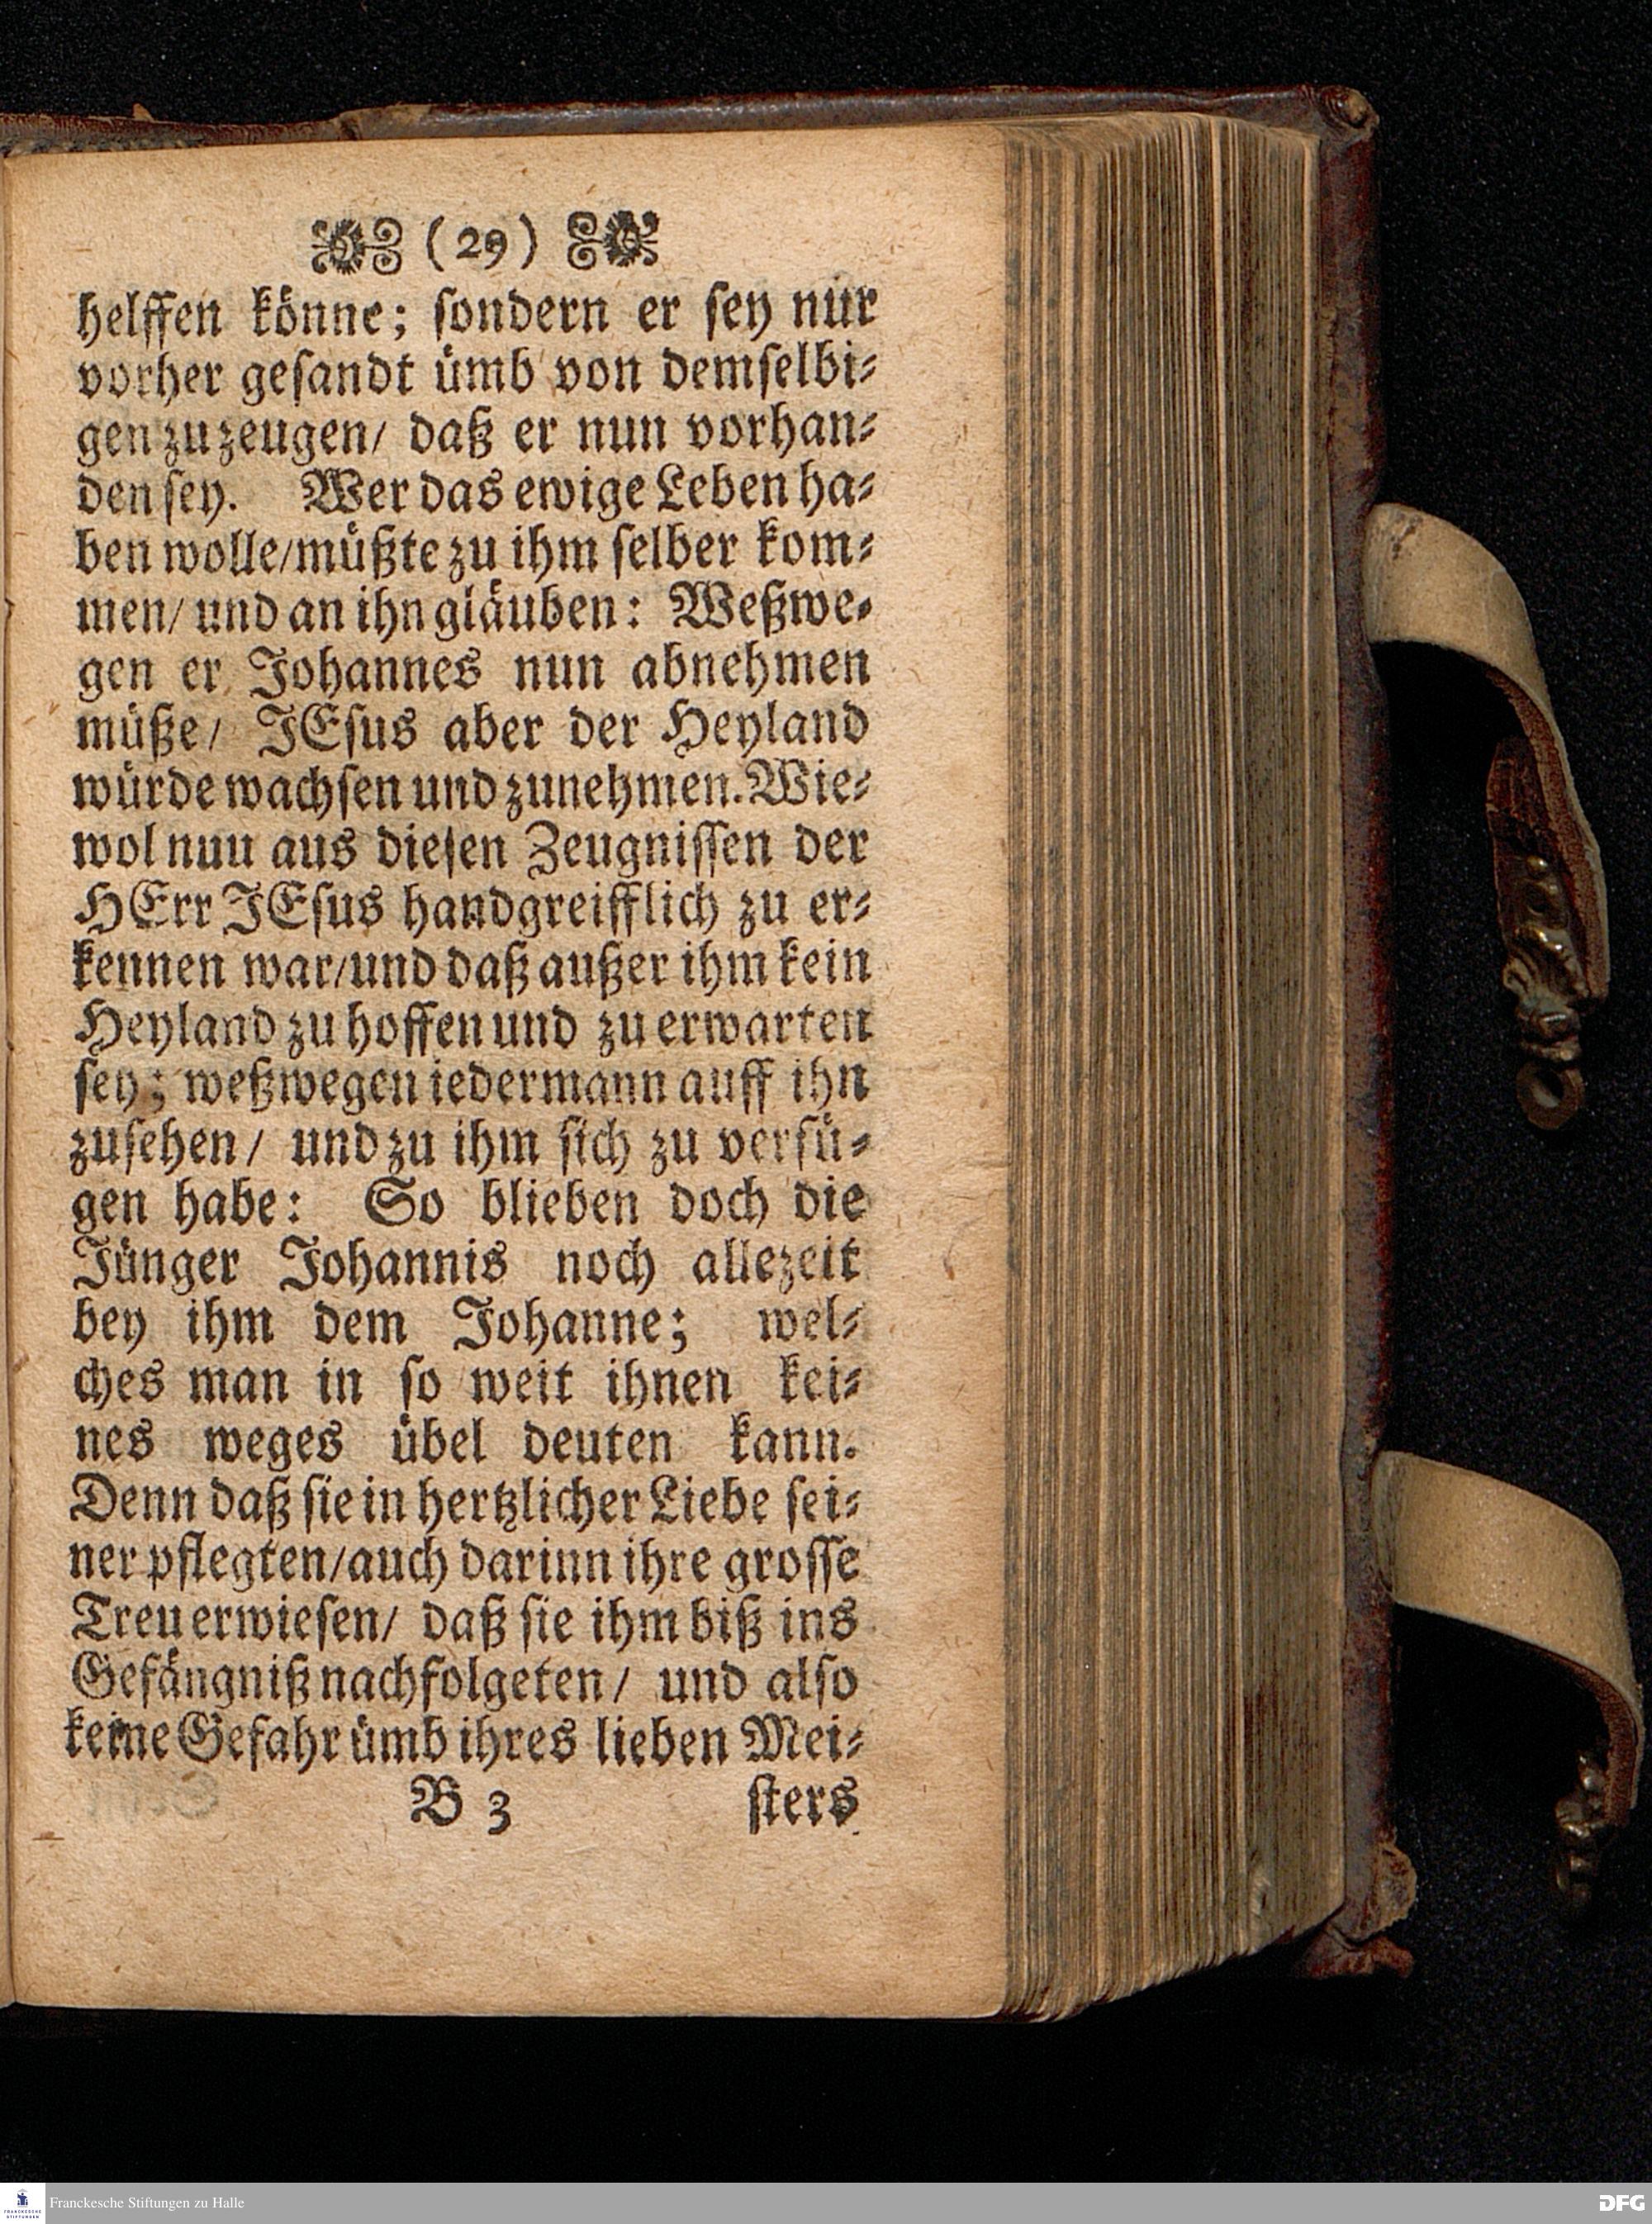 (29)
helffen könne; ſondern er ſey nur
vorher geſandt ümb von demſelbi⸗
gen zu zeugen/ daß er nun vorhan⸗
den ſey. Wer das ewige Leben ha⸗
ben wolle/müßte zu ihm ſelber kom⸗
men/ und an ihn gläuben: Weßwe⸗
gen er Johannes nun abnehmen
müße/ JEſus aber der Heyland
würde wachſen und zunehmen. Wie⸗
wol nun aus dieſen Zeugniſſen der
HErr JEſus handgreifflich zu er⸗
kennen war/und daß außer ihm kein
Heyland zu hoffen und zu erwarten
ſey; weßwegen iedermann auff ihn
zuſehen/ und zu ihm ſich zu verfü⸗
gen habe: So blieben doch die
Jünger Johannis noch allezeit
bey ihm dem Johanne; wel⸗
ches man in ſo weit ihnen kei⸗
nes weges übel deuten kann.
Denn daß ſie in hertzlicher Liebe ſei⸗
ner pflegten/auch darinn ihre groſſe
Treu erwieſen/ daß ſie ihm biß ins
Gefängniß nachfolgeten/ und alſo
keine Gefahr ümb ihres lieben Mei⸗
B 3 ſters
Franckesche Stiftungen zu Halle
DFG